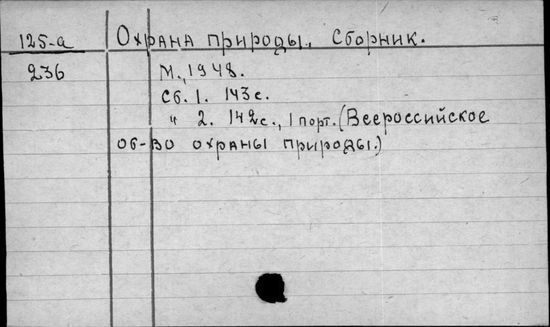 125-а Охрана природы. Сборник.
236 М., 1948.
Сб. 1. 143с.
" 2. 142с., 1 порт. (Всероссийское
об-во охраны природы.)